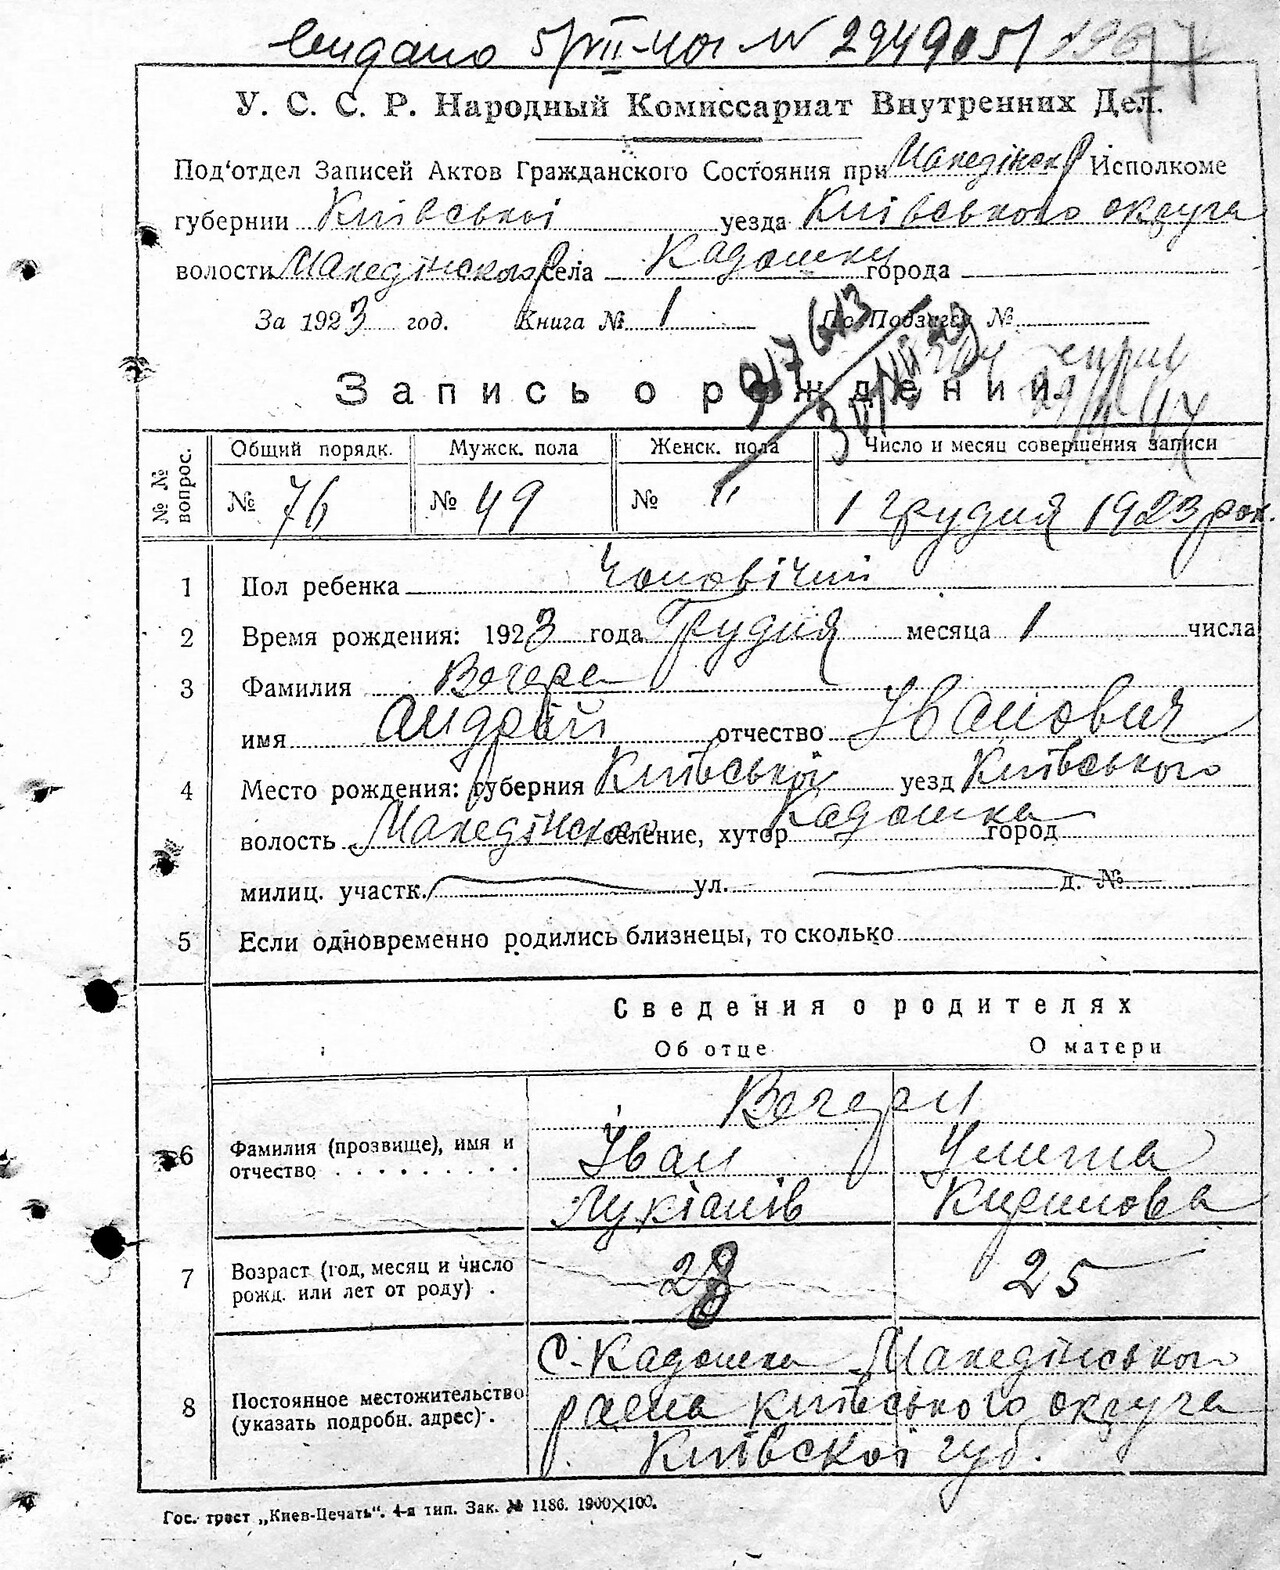 видано 5/VII-40 № 294905
У. С. С. Р. Народный Комиссариат Внутренних Дел.
Под'отдел Записей Актов Гражданского Состояния при Македінськ Исполкоме
губернии Київської уезда Київського округа
волости Македінского села Кадомки города
За 1923 год. Книга № 1 По Подзагсу №
917643
Запись о рождении
№№ вопрос. Общий порядк. Мужск. пола Женск. пола Число и месяц совершения записи
№ 76 № 49 № " 1 грудня 1923 рок.
1 Пол ребенка Чоловічий
2 Время рождения: 1923 года Грудня месяца 1 числа
3 Фамилия Вечера
имя Андрій отчество Іванович
4 Место рождения: губерния Київської уезд Київського
волость Македінского селение, хутор Кадомка город
милиц. участк. ул. д. №
5 Если одновременно родились близнецы, то сколько
Сведения о родителях
Об отце О матери
Вечери
6 Фамилия (прозвище), имя и Іван Улита
отчество Лукіанів
7 Возраст (год, месяц и число 28 25
рожд. или лет от роду)
С. Кадомка Македінського
8 Постоянное местожительство района Київського округа
(указать подробн. адрес). Київскої губ.
Гос. трест „Киев-Печать“. 4-я тип. Зак. № 1186. 1900×100.